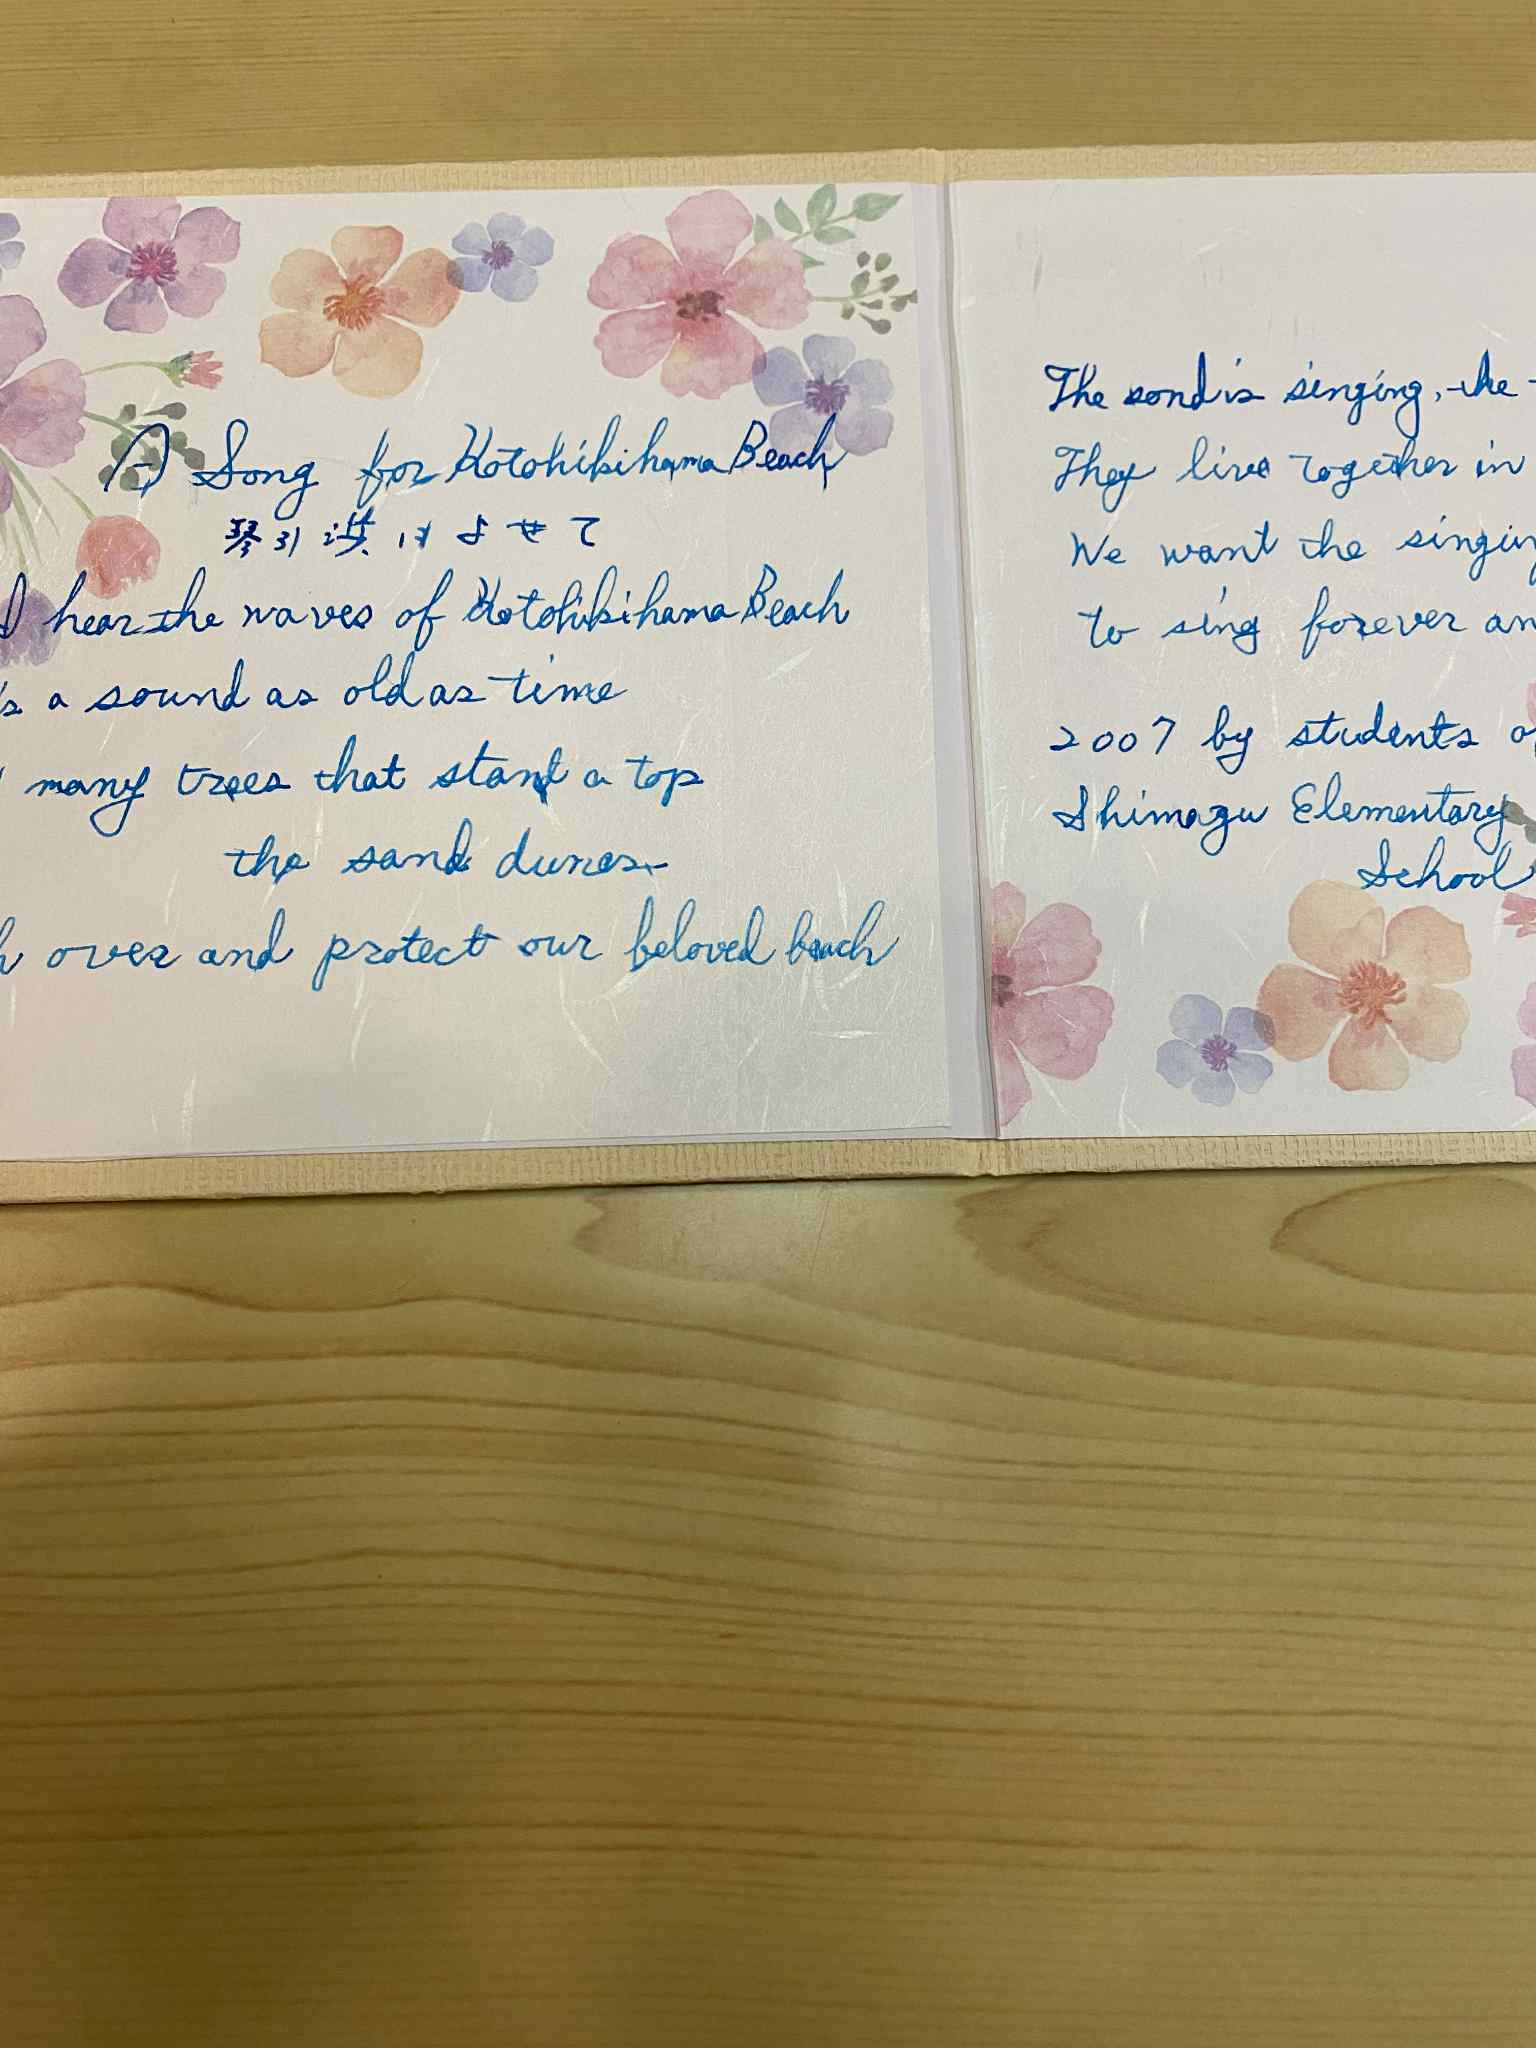 A Song for Kotohikihama Beach
琴引浜によせて
I hear the waves of Kotohikihama Beach
's a sound as old as time
many trees that stand a top
the sand dunes
h over and protect our beloved beach
The sand is singing, the
They live together in
We want the singing
to sing forever an
2007 by students of
Shimazu Elementary
School